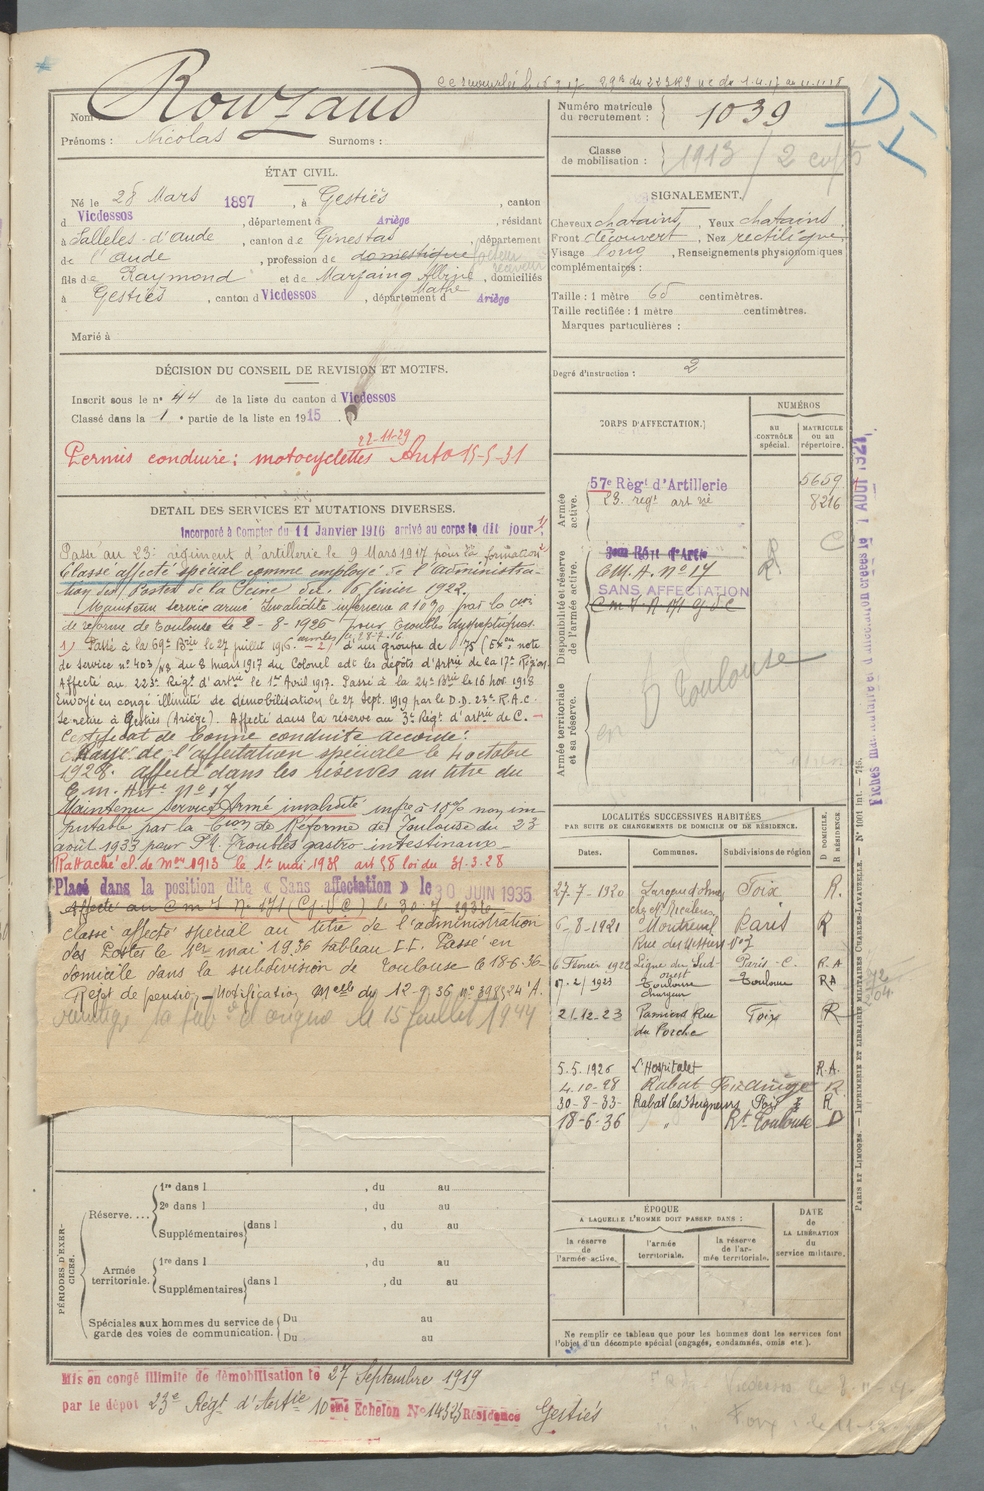 29e du 223e RI
Nom Rouzaud
Prénoms : Nicolas Surnoms :
Numéro matricule du recrutement : 1039
Classe de mobilisation : 1913 / 2
ÉTAT CIVIL.
Né le 28 Mars 1897, à Gestiès, canton
d Vicdessos, département d Ariège, résidant
à Salleles-d'aude, canton de Ginestas, département
de l'aude, profession de domestique facteur receveur
fils de Raymond et de Marfaing Albine Mathe, domiciliés
à Gestiès, canton d Vicdessos, département d Ariège
Marié à
SIGNALEMENT.
Cheveux chatains, Yeux chatains
Front découvert, Nez rectiligne
Visage long, Renseignements physionomiques
complémentaires :
Taille : 1 mètre 65 centimètres.
Taille rectifiée : 1 mètre centimètres.
Marques particulières :
Degré d'instruction : 2
DÉCISION DU CONSEIL DE REVISION ET MOTIFS.
Inscrit sous le no 44 de la liste du canton d Vicdessos
Classé dans la 1e partie de la liste en 1915.
22-11-29
Permis conduire : motocyclettes Auto 15-5-31
DÉTAIL DES SERVICES ET MUTATIONS DIVERSES.
Incorporé à Compter du 11 Janvier 1916 arrivé au corps le dit jour 1)
Passé au 23e régiment d'artillerie le 9 Mars 1917 pour la formation 2)
Classé affecté spécial comme employé de l'administra-
tion des Postes de la Seine le 16 février 1922.
Maintenu service armé Invalidité inférieure à 10% par la Con
de réforme de Toulouse le 2-8-1926 pour troubles dyspeptiques.
1) Passé à la 69e Bie le 27 juillet 1916. 2) d'un groupe de 75 (Exon note
de service no 403/ du 8 mars 1917 du Colonel adt les dépôts d'Artrie de la 17e Région
Affecté au 223e Régt d'artrie le 1er Avril 1917. Passé à la 24e Bie le 16 nov. 1918
Envoyé en congé illimité de démobilisation le 27 Sept. 1919 par le D.D. 23e R.A.C.
Se retire à Gestiès (Ariège). Affecté dans la réserve au 3e Régt d'artrie de C.
Certificat de bonne conduite accordé.
Rayé de l'affectation spéciale le 4 octobre
1928. affecté dans les réserves au titre du
C.M. Arte No 17
Maintenu Service Armé invalidité infre à 10% non im-
putable par la Con de Réforme de Toulouse du 23
août 1933 pour troubles gastro-intestinaux
Rattaché cl. de mon 1913 le 1er mai 1935 art 58 loi du 31-3-28
Placé dans la position dite « Sans affectation » le 30 JUIN 1935
Affecté au C m I No 171
classé affecté spécial au titre de l'administration
des Postes le 1er mai 1936 tableau II. Passé en
domicile dans la subdivision de Toulouse le 18-6-36
Rejet de pension Notification Melle du 12-9-36
le 15 juillet 1944
CORPS D'AFFECTATION.
NUMÉROS
AU CONTRÔLE spécial.
MATRICULE ou au répertoire.
Armée active.
57e Régt d'Artillerie 5659
23. regt art 8216
Disponibilité et réserve de l'armée active.
C M. A. No 17
SANS AFFECTATION
Armée territoriale et sa réserve.
Toulouse
Fiches matriculaire et d'affectation créées le 1 AOUT 1921
LOCALITÉS SUCCESSIVES HABITÉES
PAR SUITE DE CHANGEMENTS DE DOMICILE OU DE RÉSIDENCE.
Dates. Communes. Subdivisions de région D DOMICILE, R RÉSIDENCE
27-7-1920 Foix R.
6-8-1921 Montreuil Paris R
6 Février 1922 Ligne du Sud-ouest Paris-C. R.A
17-2/1923 Toulouse Toulouse RA
21-12-23 Pamiers Rue du Porche Foix R
5.5.1926 L'Hospitalet R.A.
4-10-28 Rabat R
30-8-33 Rabat les 3 Seigneurs Foix R
18-6-36 " Rt Toulouse D
PÉRIODES D'EXERCICES.
Réserve.... 1re dans l , du au
2e dans l , du au
Supplémentaires dans l , du au
Armée territoriale. 1re dans l , du au
Supplémentaires dans l , du au
Spéciales aux hommes du service de garde des voies de communication. Du au
Du au
ÉPOQUE
A LAQUELLE L'HOMME DOIT PASSER DANS :
la réserve de l'armée active.
l'armée territoriale.
la réserve de l'armée territoriale.
DATE de LA LIBÉRATION du service militaire.
Ne remplir ce tableau que pour les hommes dont les services font
l'objet d'un décompte spécial (engagés, condamnés, omis etc.).
PARIS ET LIMOGES. — IMPRIMERIE ET LIBRAIRIE MILITAIRES CHARLES-LAVAUZELLE. — No 1001 Int. — 7|5.
Mis en congé illimité de démobilisation le 27 Septembre 1919
par le dépôt 23e Régt d'Artie 10 eme Echelon No 14323 Résidence Gestiès